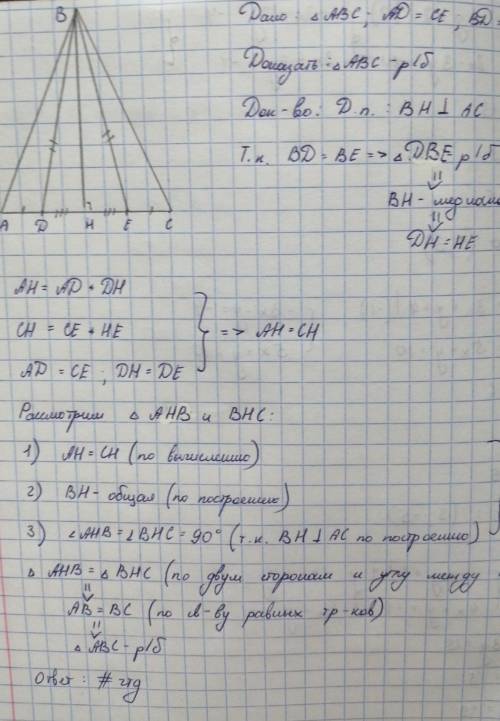 B
A D H E C
Дано: △ABC; AD = CE; BD =
Доказать: △ABC – р/б
Док-во: Д.п.: BH ⊥ AC
Т.к. BD = BE => △DBE р/б
BH – медиана
DH = HE
AH = AD + DH
CH = CE + HE
=> AH = CH
AD = CE ; DH = DE
Рассмотрим △ AHB и BHC:
1) AH = CH (по вычислению)
2) BH – общая (по построению)
3) ∠AHB = ∠BHC = 90° (т.к. BH ⊥ AC по построению)
△ AHB = △ BHC (по двум сторонам и углу между
AB = BC (по св-ву равных тр-ков)
△ ABC – р/б
Ответ: # чтд